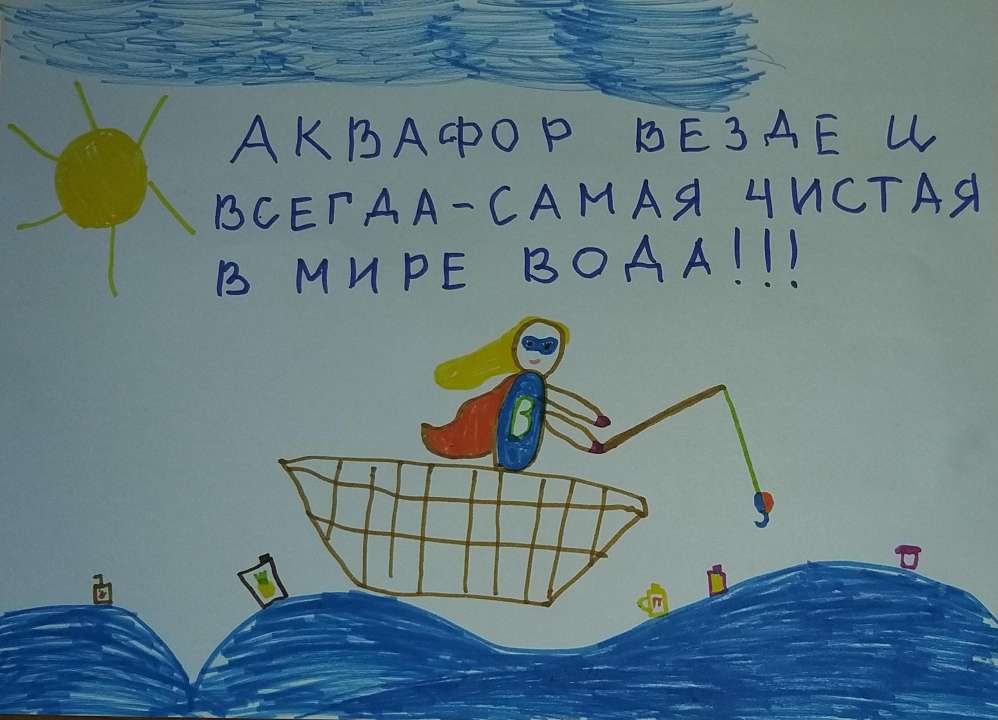 АКВАФОР ВЕЗДЕ И
ВСЕГДА-САМАЯ ЧИСТАЯ
В МИРЕ ВОДА!!!
В
П